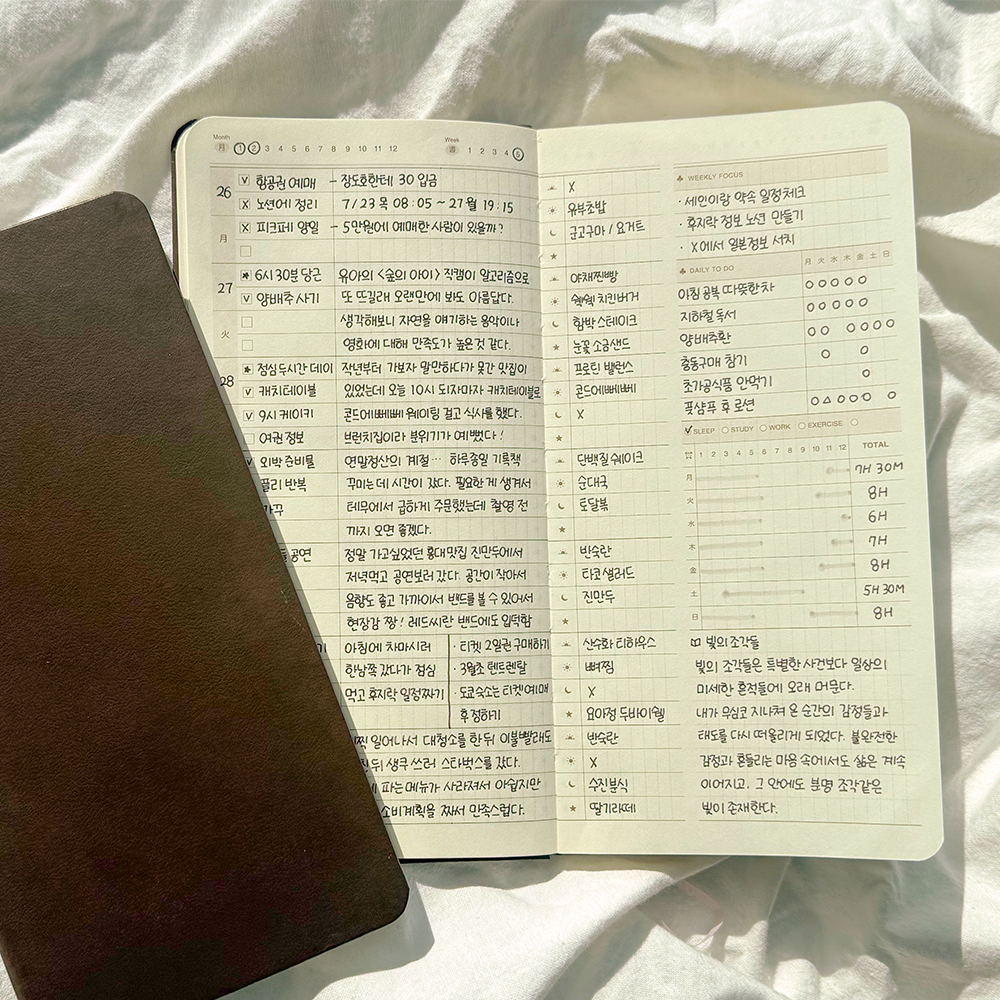 Month
月 1 2 3 4 5 6 7 8 9 10 11 12
Week
週 1 2 3 4 5
26
月
v 항공권 예매 - 장도호한테 30 입금
x 노션에 정리 7/23 목 08:05 ~ 27월 19:15
x 피크페 양일 - 5만원에 예매한 사람이 있을까?
27
火
* 6시30분 당근 유아의 <숲의 아이> 직캠이 알고리즘으로
v 양배추 사기 또 뜨길래 오랜만에 봐도 아름답다.
생각해보니 자연을 얘기하는 음악이나
영화에 대해 만족도가 높은것 같다.
28
* 점심 두시간 데이 작년부터 가보자 말만하다가 못간 맛집이
v 캐치테이블 있었는데 오늘 10시 되자마자 캐치테이블로
v 9시 케이키 콘드에뻬뻬 웨이팅 걸고 식사를 했다.
여권 정보 브런치집이라 분위기가 예뻤다!
v 외박 준비물 연말정산의 계절… 하루종일 기록책
플리 반복 꾸미는데 시간이 갔다. 필요한 게 생겨서
가꾸 테무에서 급하게 주문했는데 촬영 전
까지 오면 좋겠다.
공연 정말 가고싶었던 홍대맛집 진만두에서
저녁먹고 공연보러 갔다. 공간이 작아서
음향도 좋고 가까이서 밴드를 볼 수 있어서
현장감 짱! 레드씨랑 밴드에도 입덕함
기 아침에 차마시러
한남쪽 갔다가 점심
먹고 후지락 일정짜기
· 티켓 2일권 구매하기
· 3월초 텐트렌탈
· 도쿄숙소는 티켓예매
후 정하기
찍 일어나서 대청소를 한 뒤 이불빨래도
뒤 생쿠 쓰러 스타벅스를 갔다.
파는 메뉴가 사라져서 아쉽지만
소비계획을 짜서 만족스럽다.
X
유부초밥
군고구마 / 요거트
야채찐빵
쉑쉑 치킨버거
함박 스테이크
눈꽃 소금샌드
프로틴 밸런스
콘드에뻬뻬
X
단백질 쉐이크
순대국
토달볶
반숙란
타코샐러드
진만두
산수화 티하우스
뼈찜
X
요아정 두바이쉘
반숙란
X
수진분식
딸기라떼
WEEKLY FOCUS
· 세인이랑 약속 일정체크
· 후지락 정보 노션 만들기
· X에서 일본정보 서치
DAILY TO DO 月 火 水 木 金 土 日
아침 공복 따뜻한 차 O O O O O
지하철 독서 O O O O O
양배추환 O O O O O O
충동구매 참기 O O
초가공식품 안먹기 O
풋샴푸 후 로션 O △ O O O O
SLEEP STUDY WORK EXERCISE
1 2 3 4 5 6 7 8 9 10 11 12 TOTAL
月 7H 30M
火 8H
水 6H
木 7H
金 8H
土 5H 30M
日 8H
빛의 조각들
빛의 조각들은 특별한 사건보다 일상의
미세한 흔적들에 오래 머문다.
내가 무심코 지나쳐 온 순간의 감정들과
태도를 다시 떠올리게 되었다. 불완전한
감정과 흔들리는 마음 속에서도 삶은 계속
이어지고, 그 안에도 분명 조각같은
빛이 존재한다.